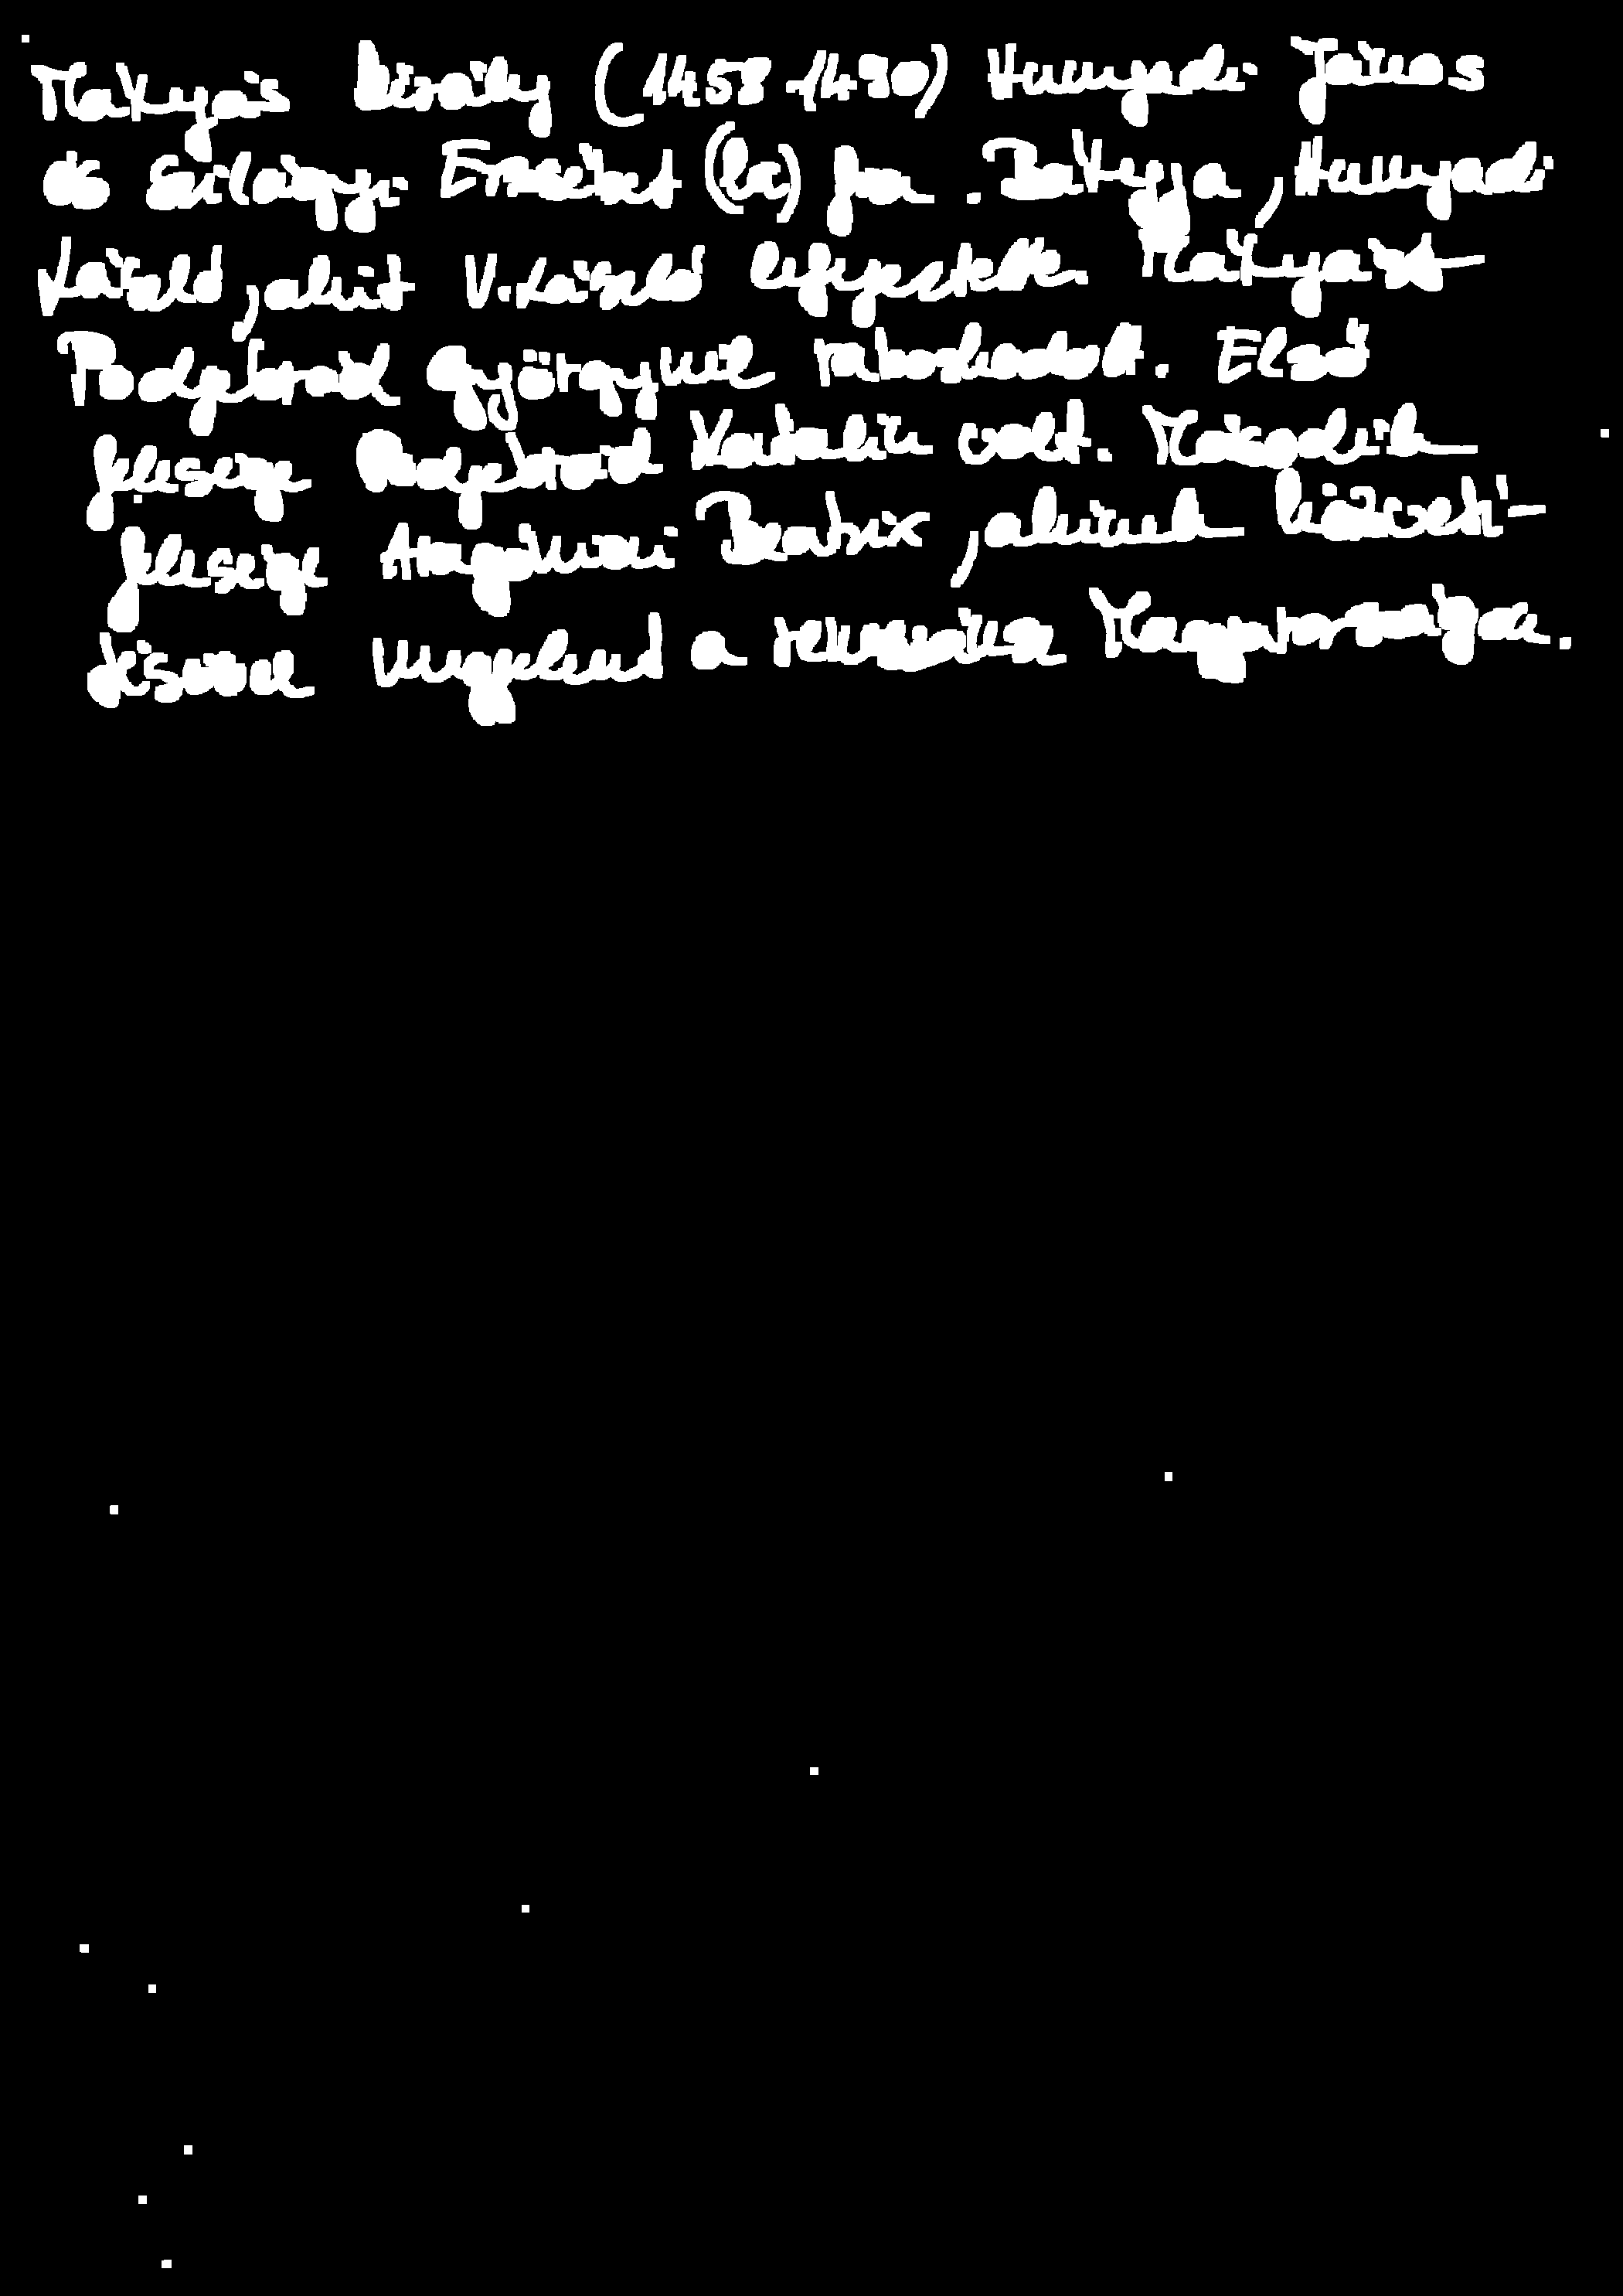 Mátyás király (1458-1490) Hunyadi János
és Szilágyi Erzsébet fia. Bátyja, Hunyadi
László, akit V. László lefejeztette. Mátyást
Podjebrád Györgynél raboskodott. Első
felesége Podjebrád Katalin volt. Második
felesége Aragóniai Beatrix, akinek közvetí-
tésével megjelent a reneszánsz Magyarországon.